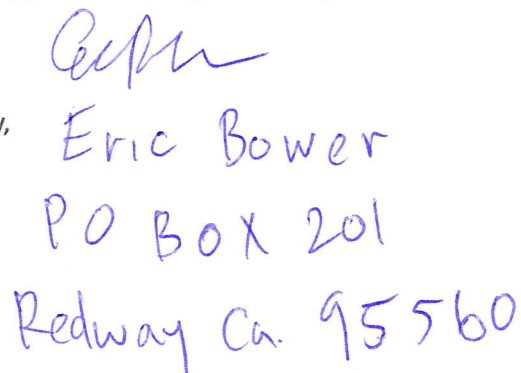 Eric Bower
PO BOX 201
Redway Ca. 95560